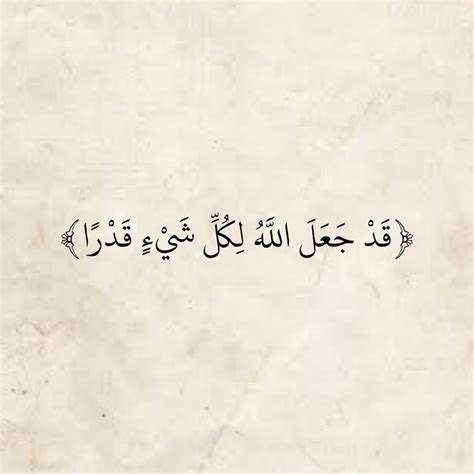 ﴿قَدْ جَعَلَ اللَّهُ لِكُلِّ شَيْءٍ قَدْرًا﴾